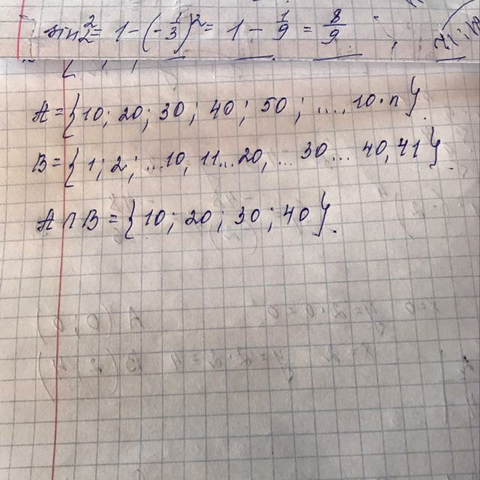 sin²2 = 1 - (-1/3)² = 1 - 1/9 = 8/9
A = {10; 20; 30; 40; 50; ...., 10·n}.
B = {1; 2; ...10, 11...20, ...30... 40, 41}.
A ∩ B = {10; 20; 30; 40}.